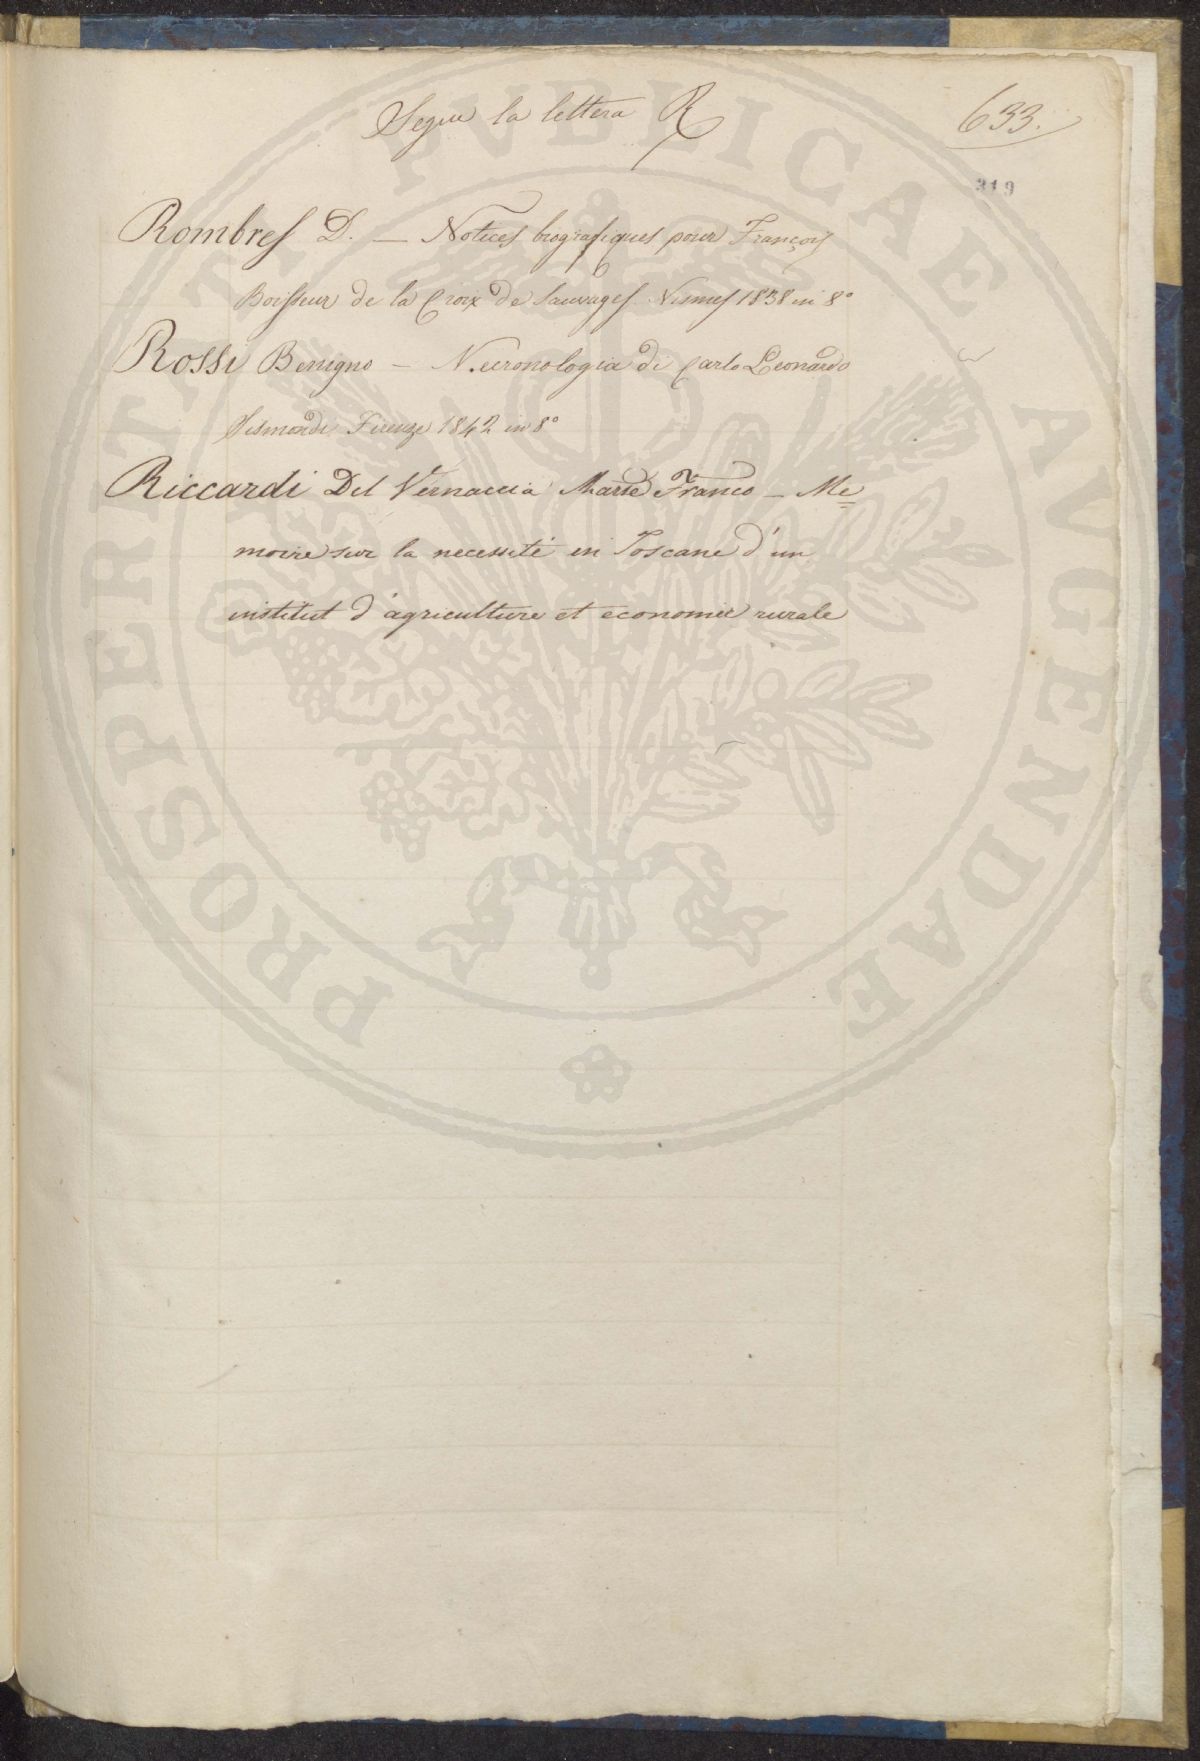 Segue la lettera R
633.
319
Rombres D. — Notices biografiques pour François
Boisseur de la Croix de Sauvages Nismes 1838 in 8°
Rossi Benigno — Necronologia di Carlo Leonardo
Sismondi Firenze 1842 in 8°
Riccardi Del Vernaccia Franco — Me
moire sur la necessité en Toscane d'un
institut d'agriculture et economie rurale
PROSPERITATI PVBLICAE AVGENDAE